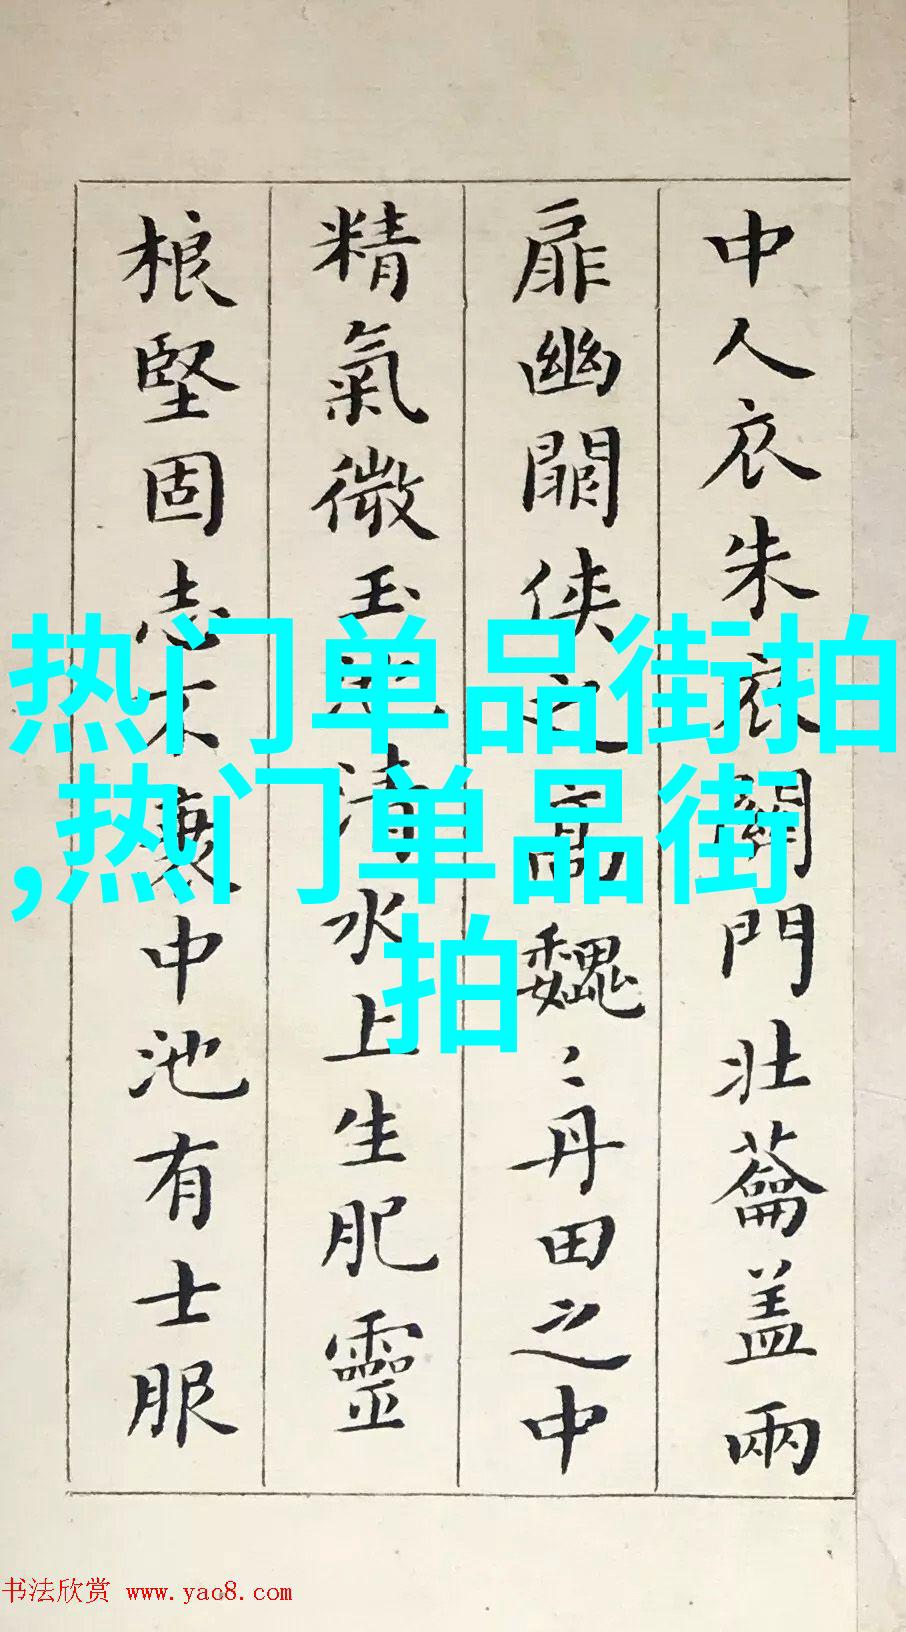 中人衣朱衣關門壯蘥盖兩
扉幽闗俠之高魏〻丹田之中
精氣微玉池清水上生肥靈
根堅固志不衰中池有士服
热门单品街拍
,热门单品街
拍
书法欣赏 www.yac8.com